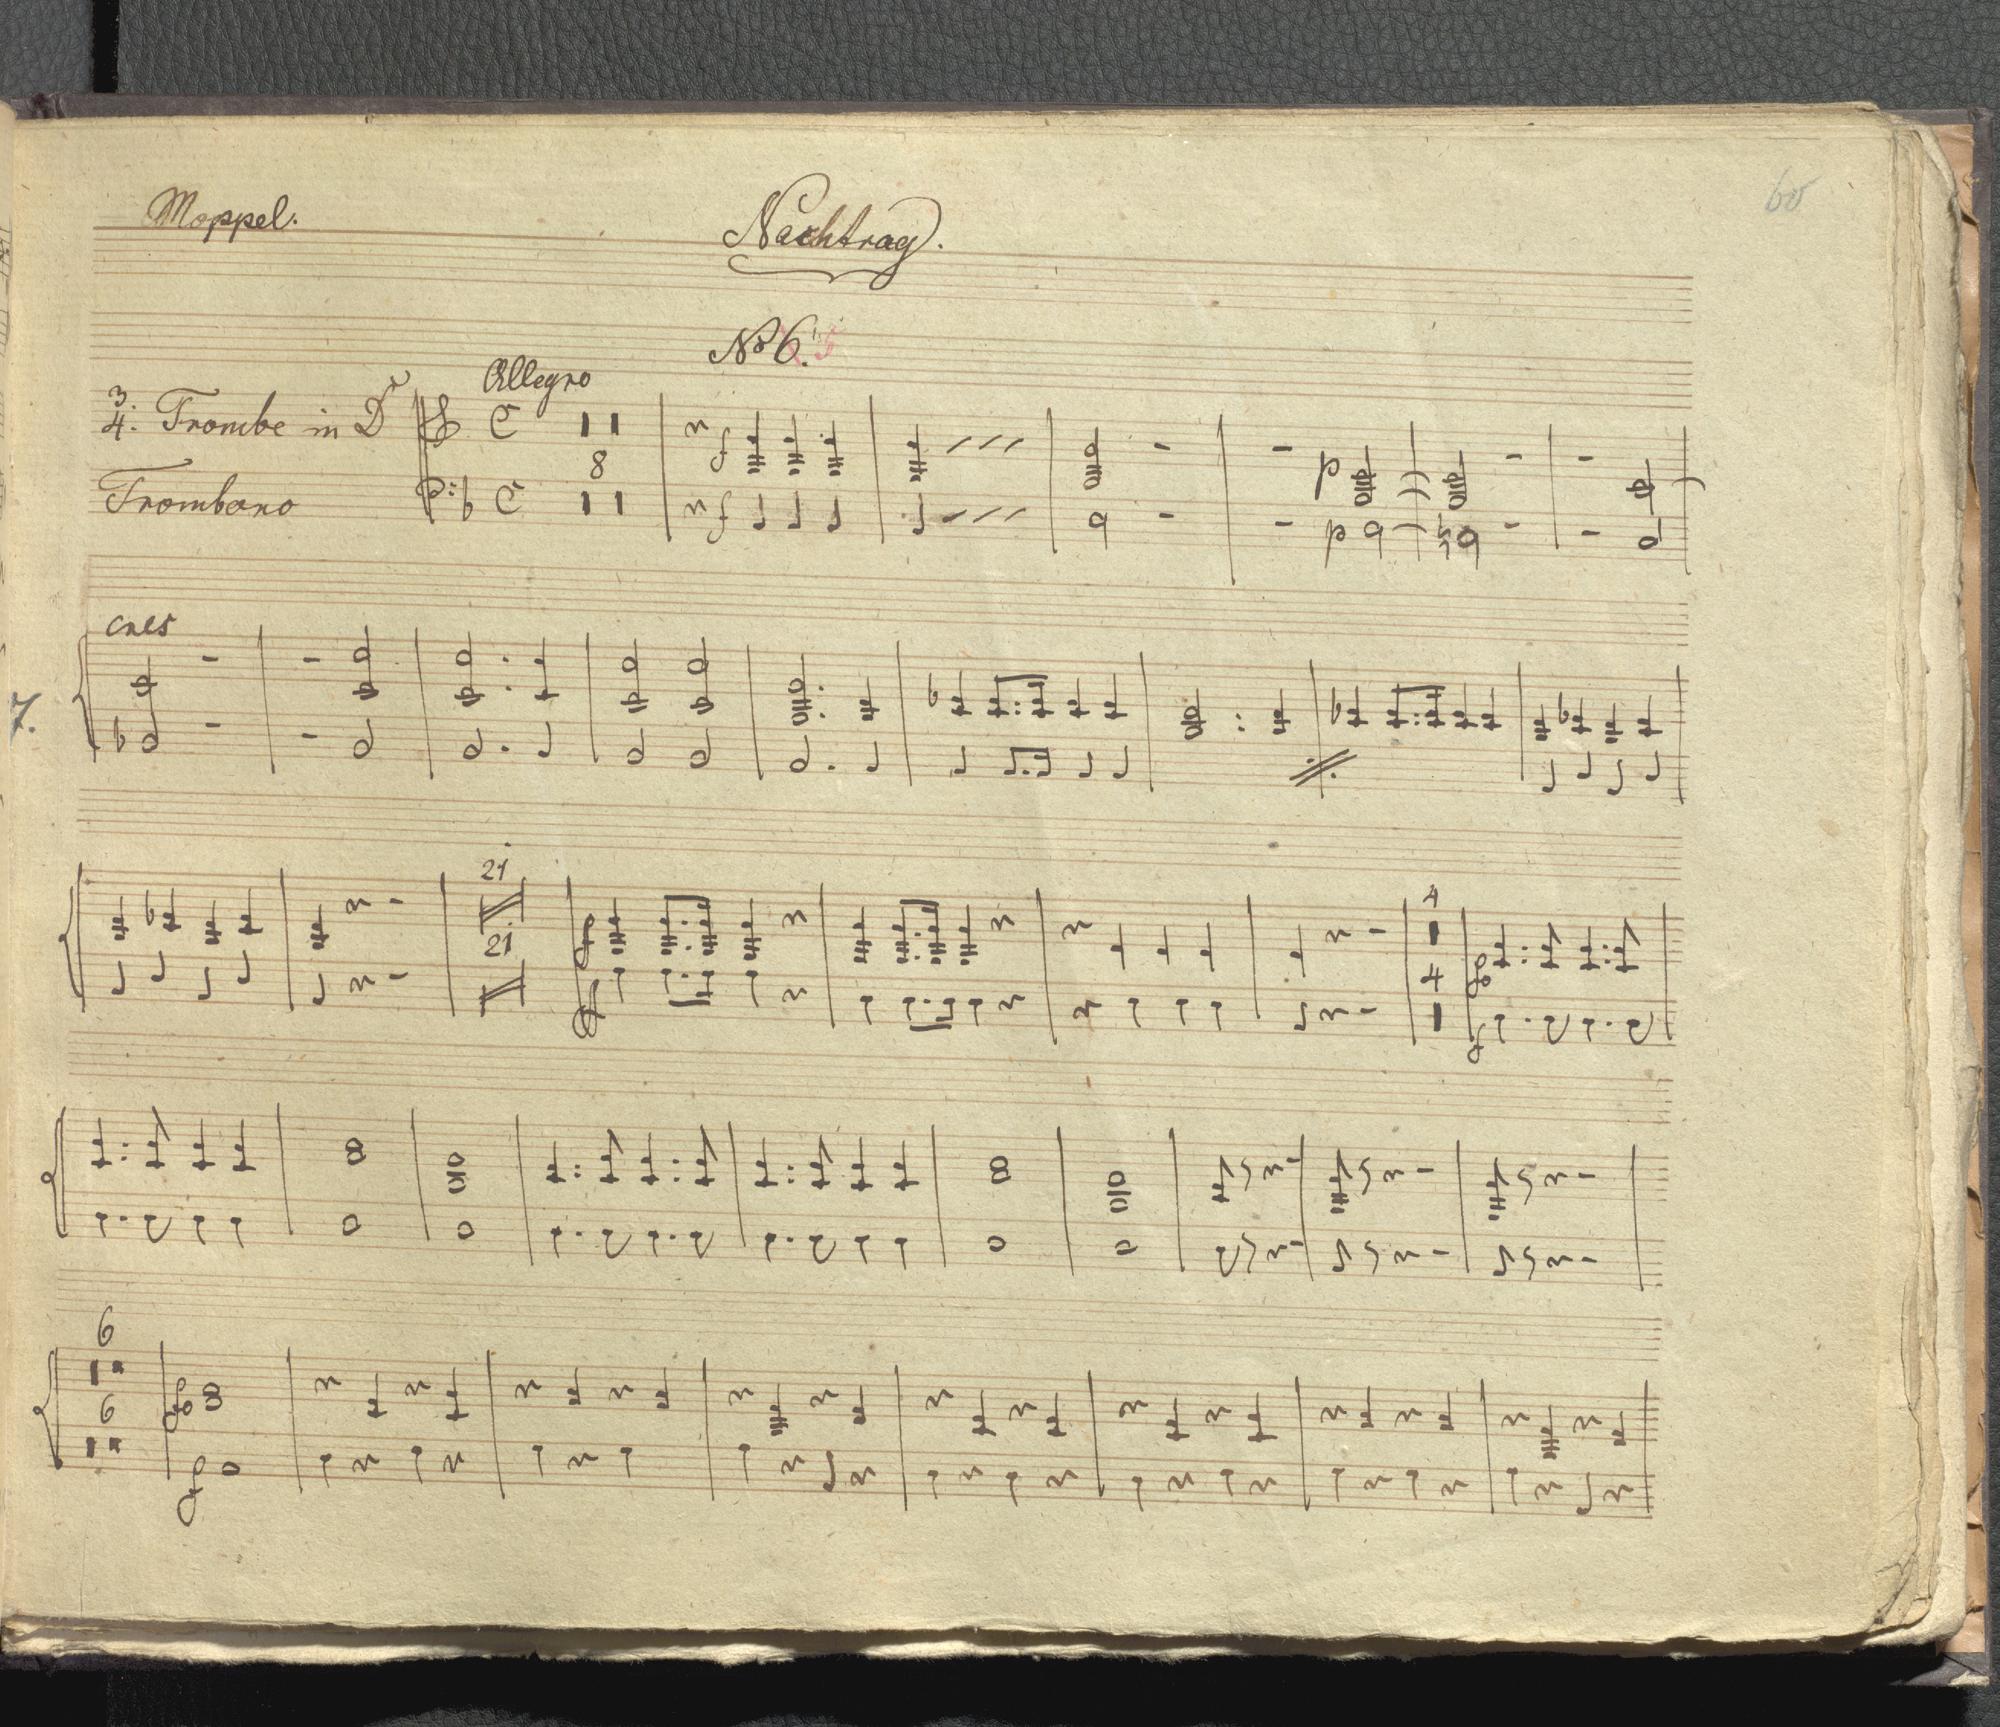 Moppel.
Nachtrag.
No 6. 5
Allegro
3
4. Trombe in D
8
f
p
Trombono
f
p
cres
7.
21
21
4
4
6
6